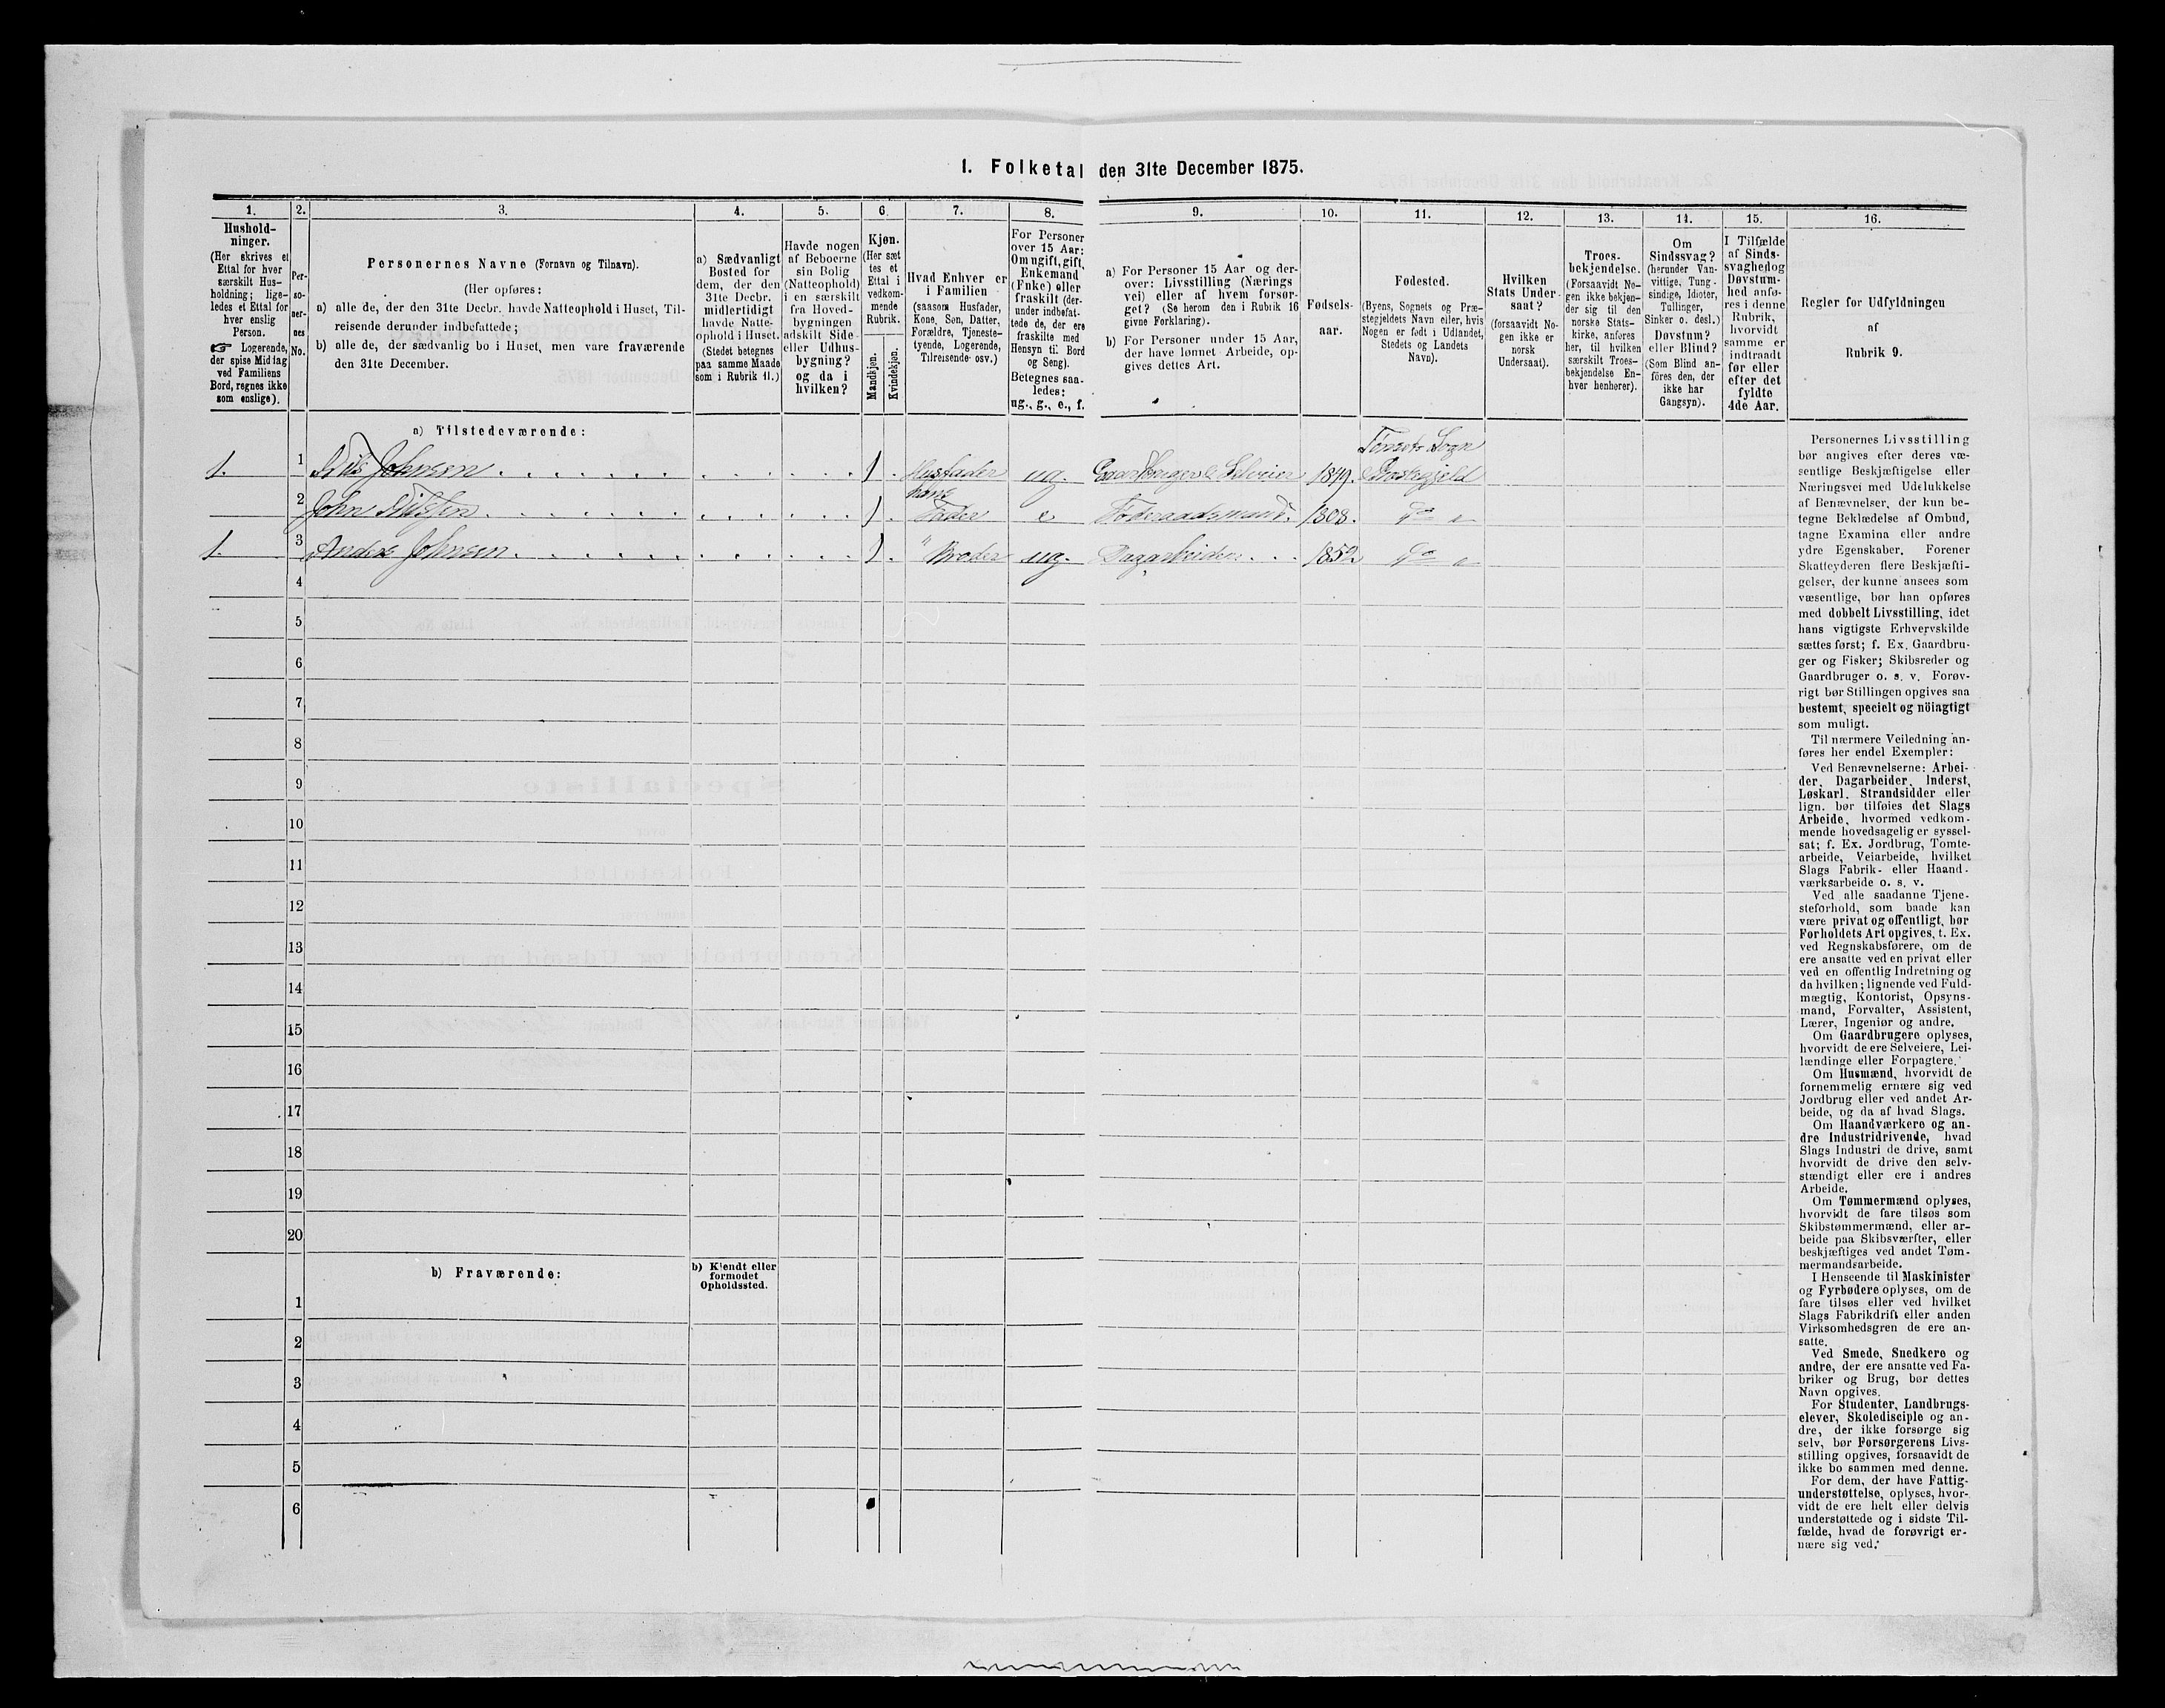 1. Folketal den 31te December 1875.
1.
Hushold-
ninger.
(Her skrives et
Ettal for hver
særskilt Hus-
holdning; lige-
ledes et Ettal for
hver enslig
Person.
☞ Logerende,
der spise Middag
ved Familiens
Bord, regnes ikke
som enslige).
2.
Per-
so-
ner-
nes
No.
3.
Personernes Navne (Fornavn og Tilnavn).
(Her opføres:
a) alle de, der den 31te Decbr. havde Natteophold i Huset, Til-
reisende derunder indbefattede;
b) alle de, der sædvanlig bo i Huset, men vare fraværende
den 31te December.
4.
a) Sædvanligt
Bosted for
dem, der den
31te Decbr.
midlertidigt
havde Natte-
ophold i Huset.
(Stedet betegnes
paa samme Maade
som i Rubrik 11.)
5.
Havde nogen
af Beboerne
sin Bolig
(Natteophold)
i en særskilt
fra Hoved-
bygningen
adskilt Side-
eller Udhus-
bygning?
og da i
hvilken?
6.
Kjøn.
(Her sæt
tes et
Ettal i
vedkom-
mende
Rubrik.
Mandkjøn.
Kvindekjøn.
7.
Hvad Enhver er
i Familien
(saasom Husfader,
Kone, Søn, Datter,
Forældre, Tjeneste-
tyende, Logerende,
Tilreisende osv.)
8.
For Personer
over 15 Aar:
Om ugift, gift,
Enkemand
(Enke) eller
fraskilt (der-
under indbefat-
tede de, der ere
fraskilte med
Hensyn til Bord
og Seng).
Betegnes saa-
ledes:
ug., g., e., f.
9.
a) For Personer 15 Aar og der-
over: Livsstilling (Nærings
vei) eller af hvem forsør-
get? (Se herom den i Rubrik 16
givne Forklaring).
b) For Personer under 15 Aar,
der have lønnet Arbeide, op-
gives dettes Art.
10.
Fødsels-
aar.
11.
Fødested.
(Byens, Sognets og Præ-
stegjeldets Navn eller, hvis
Nogen er født i Udlandet,
Stedets og Landets
Navn).
12.
Hvilken
Stats Under-
saat?
(forsaavidt No-
gen ikke er
norsk
Undersaat).
13.
Troes-
bekjendelse.
(Forsaavidt No-
gen ikke bekjen-
der sig til den
norske Stats-
kirke, anføres
her, til hvilken
særskilt Troes-
bekjendelse En-
hver henhører).
14.
Om
Sindssvag?
(herunder Van-
vittige, Tung-
sindige, Idioter,
Tullinger,
Sinker o. desl.)
Døvstum?
eller Blind?
(Som Blind an-
føres den, der
ikke har
Gangsyn).
15.
I Tilfælde
af Sinds-
svaghed og
Døvstum-
hed anfø-
res i denne
Rubrik,
hvorvidt
samme er
indtraadt
før eller
efter det
fyldte
4de Aar.
16.
Regler for Udfyldningen
af
Rubrik 9.
a) Tilstedeværende:
1. 1 Nils Johnsen 1. Husfader ug. Gaardbruger & Selveier 1849. Tønsets Sogn
& Præstegjeld
2 John Nilssen 1. hans
Fader e Føderaadsmand. 1808. do
1. 3 Anders Johnsen 1. " Broder ug. Dagarbeider 1852 do
4
5
6
7
8
9
10
11
12
13
14
15
16
17
18
19
20
b) Fraværende:
b) Kjendt eller
formodet
Opholdssted.
1
2
3
4
5
6
Personernes Livsstilling
bør angives efter deres væ-
sentlige Beskjæftigelse eller
Næringsvei med Udelukkelse
af Benævnelser, der kun be-
tegne Beklædelse af Ombud,
tagne Examina eller andre
ydre Egenskaber. Forener
Skatteyderen flere Beskjæfti-
gelser, der kunne ansees som
væsentlige, bør han opføres
med dobbelt Livsstilling, idet
hans vigtigste Erhvervskilde
sættes først; f. Ex. Gaardbru-
ger og Fisker; Skibsreder og
Gaardbruger o. s. v. Forøv-
rigt bør Stillingen opgives saa
bestemt, specielt og nöiagtigt
som muligt.
Til nærmere Veiledning an-
føres her endel Exempler:
Ved Benævnelserne: Arbei-
der, Dagarbeider, Inderst,
Løskarl, Strandsidder eller
lign. bør tilføies det Slags
Arbeide, hvormed vedkom-
mende hovedsagelig er syssel-
sat; f. Ex. Jordbrug, Tomte-
arbeide, Veiarbeide, hvilket
Slags Fabrik- eller Haand-
værksarbeide o. s. v.
Ved alle saadanne Tjene-
steforhold, som baade kan
være privat og offentligt, bør
Forholdets Art opgives, t. Ex.
ved Regnskabsførere, om de
ere ansatte ved en privat eller
ved en offentlig Indretning og
da hvilken; lignende ved Fuld-
mægtig, Kontorist, Opsyns-
mand, Forvalter, Assistent,
Lærer, Ingeniør og andre.
Om Gaardbrugere oplyses,
hvorvidt de ere Selveiere, Lei-
lændinge eller Forpagtere.
Om Husmænd, hvorvidt de
fornemmelig ernære sig ved
Jordbrug eller ved andet Ar-
beide, og da af hvad Slags.
Om Haandværkere og an-
dre Industridrivende, hvad
Slags Industri de drive, samt
hvorvidt de drive den selv-
stændigt eller ere i andres
Arbeide.
Om Tømmermænd oplyses,
hvorvidt de fare tilsøs som
Skibstømmermænd, eller ar-
beide paa Skibsværfter, eller
beskjæftiges ved andet Tøm-
mermandsarbeide.
I Henseende til Maskinister
og Fyrbødere oplyses, om de
fare tilsøs eller ved hvilket
Slags Fabrikdrift eller anden
Virksomhedsgren de ere an-
satte.
Ved Smede, Snedkere og
andre, der ere ansatte ved Fa-
briker og Brug, bør dettes
Navn opgives.
For Studenter, Landbrugs-
elever, Skoledisciple og an-
dre, der ikke forsørge sig
selv, bør Forsørgerens Livs-
stilling opgives, forsaavidt de
ikke bo sammen med denne.
For dem, der have Fattig-
understøttelse, oplyses, hvor-
vidt de ere helt eller delvis
understøttede og i sidste Til-
fælde, hvad de forøvrigt er-
nære sig ved.